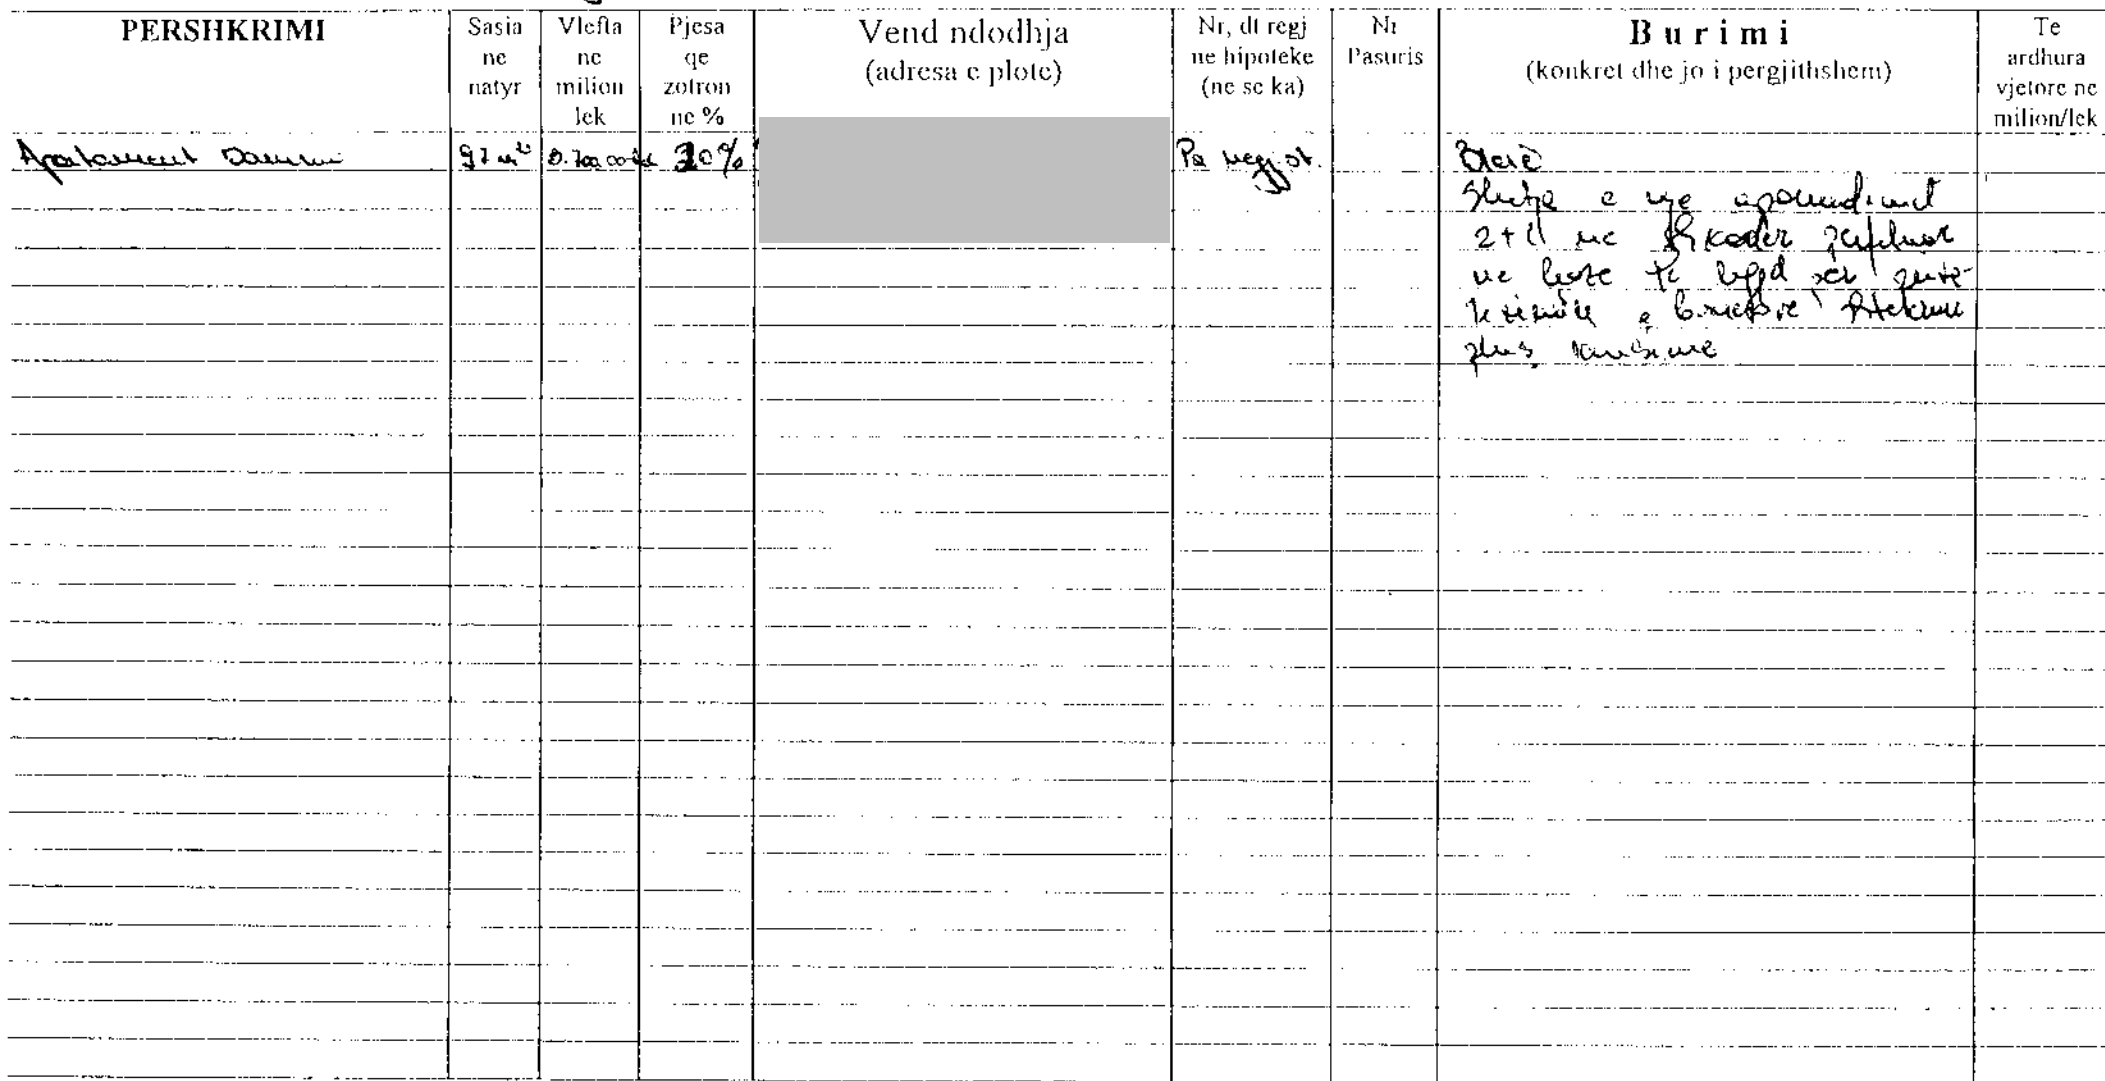 PERSHKRIMI
Sasia
ne
natyr
Vlefta
ne
milion
lek
Pjesa
qe
zotron
ne %
Vend ndodhja
(adresa e plote)
Nr, dt regj
ne hipoteke
(ne se ka)
Nr
Pasuris
Burimi
(konkret dhe jo i pergjithshem)
Te
ardhura
vjetore ne
milion/lek
Apartament
97 m²
30%
Pa regjist.
Blerë
Shitja e nje apartamentit
2+1 ne Shkoder
ne baze te
plus kursime